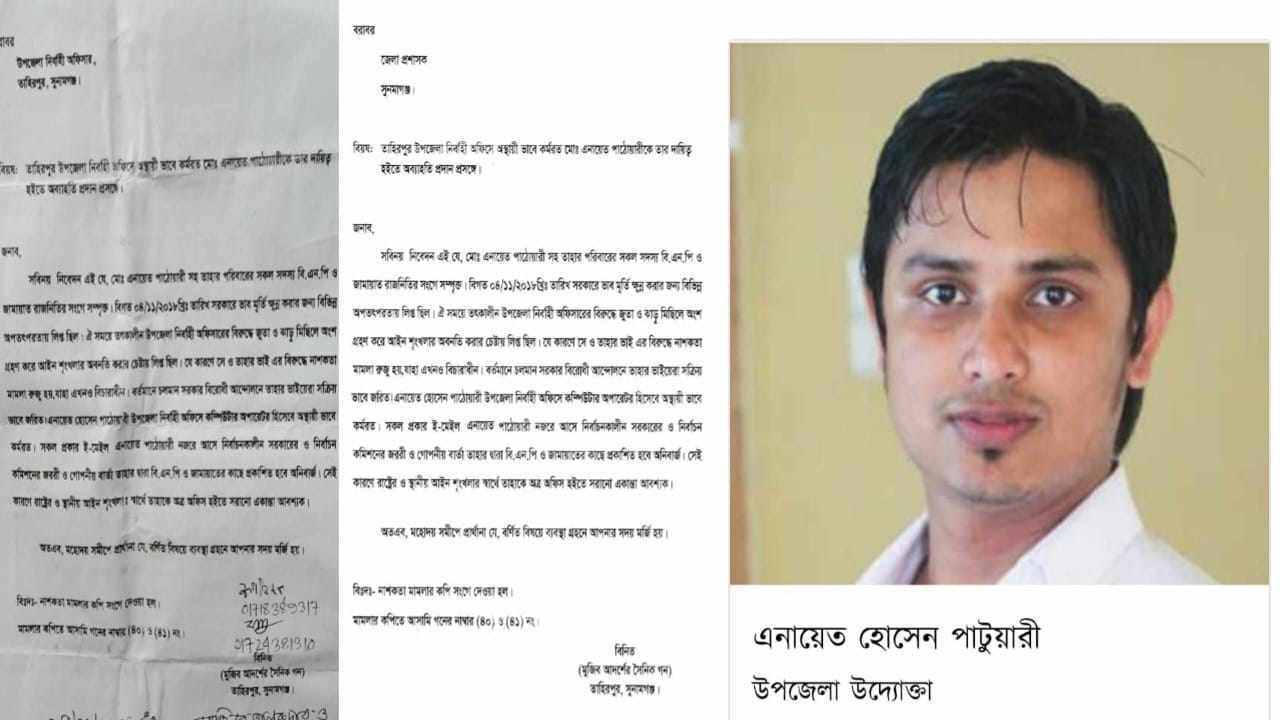 বরাবর
উপজেলা নির্বাহী অফিসার,
তাহিরপুর, সুনামগঞ্জ।
বিয়ষ: তাহিরপুর উপজেলা নির্বাহী অফিসে অস্থায়ী ভাবে কর্মরত মোঃ এনায়েত পাঠোয়ারীকে তার দায়িত্ব
হইতে অব্যাহতি প্রদান প্রসঙ্গে।
জনাব,
সবিনয় নিবেদন এই যে, মোঃ এনায়েত পাঠোয়ারী সহ তাহার পরিবারের সকল সদস্য বি.এন.পি ও
জামায়াত রাজনিতির সংগে সম্পৃক্ত। বিগত ০৪/১১/২০১৮খ্রিঃ তারিখ সরকারে ভাব মূর্তি ক্ষুন্ন করার জন্য বিভিন্ন
অপতৎপরতায় লিপ্ত ছিল। ঐ সময়ে তৎকালীন উপজেলা নির্বাহী অফিসারের বিরুদ্ধে জুতা ও ঝাড়ু মিছিলে অংশ
গ্রহণ করে আইন শৃংখলার অবনতি করার চেষ্টায় লিপ্ত ছিল। যে কারণে সে ও তাহার ভাই এর বিরুদ্ধে নাশকতা
মামলা রুজু হয়,যাহা এখনও বিচারাধীন। বর্তমানে চলমান সরকার বিরোধী আন্দোলনে তাহার ভাইয়েরা সক্রিয়
ভাবে জরিত।এনায়েত হোসেন পাঠোয়ারী উপজেলা নির্বাহী অফিসে কম্পিউটার অপারেটর হিসেবে অস্থায়ী ভাবে
কর্মরত। সকল প্রকার ই-মেইল এনায়েত পাঠোয়ারী নজরে আসে নির্বাচনকালীন সরকারের ও নির্বাচন
কমিশনের জররী ও গোপনীয় বার্তা তাহার দ্বারা বি.এন.পি ও জামায়াতের কাছে প্রকাশিত হবে অনিবার্জ। সেই
কারণে রাষ্ট্রের ও স্থানীয় আইন শৃংখলার স্বার্থে তাহাকে অত্র অফিস হইতে সরানো একান্তা আবশ্যক।
অতএব, মহোদয় সমীপে প্রার্থানা যে, বর্ণিত বিষয়ে ব্যবস্থা গ্রহনে আপনার সদয় মর্জি হয়।
বিঃদ্রঃ- নাশকতা মামলার কপি সংগে দেওয়া হল।
01718389317
মামলার কপিতে আসামি গনের নাম্বার (৪০) ও (৪১) নং।
01724381310
বিনিত
(মুজিব আদর্শের সৈনিক গন)
তাহিরপুর, সুনামগঞ্জ।
বরাবর
জেলা প্রশাসক
সুনমাগঞ্জ।
বিয়ষ: তাহিরপুর উপজেলা নির্বাহী অফিসে অস্থায়ী ভাবে কর্মরত মোঃ এনায়েত পাঠোয়ারীকে তার দায়িত্ব
হইতে অব্যাহতি প্রদান প্রসঙ্গে।
জনাব,
সবিনয় নিবেদন এই যে, মোঃ এনায়েত পাঠোয়ারী সহ তাহার পরিবারের সকল সদস্য বি.এন.পি ও
জামায়াত রাজনিতির সংগে সম্পৃক্ত। বিগত ০৪/১১/২০১৮খ্রিঃ তারিখ সরকারে ভাব মূর্তি ক্ষুন্ন করার জন্য বিভিন্ন
অপতৎপরতায় লিপ্ত ছিল। ঐ সময়ে তৎকালীন উপজেলা নির্বাহী অফিসারের বিরুদ্ধে জুতা ও ঝাড়ু মিছিলে অংশ
গ্রহণ করে আইন শৃংখলার অবনতি করার চেষ্টায় লিপ্ত ছিল। যে কারণে সে ও তাহার ভাই এর বিরুদ্ধে নাশকতা
মামলা রুজু হয়,যাহা এখনও বিচারাধীন। বর্তমানে চলমান সরকার বিরোধী আন্দোলনে তাহার ভাইয়েরা সক্রিয়
ভাবে জরিত।এনায়েত হোসেন পাঠোয়ারী উপজেলা নির্বাহী অফিসে কম্পিউটার অপারেটর হিসেবে অস্থায়ী ভাবে
কর্মরত। সকল প্রকার ই-মেইল এনায়েত পাঠোয়ারী নজরে আসে নির্বাচনকালীন সরকারের ও নির্বাচন
কমিশনের জররী ও গোপনীয় বার্তা তাহার দ্বারা বি.এন.পি ও জামায়াতের কাছে প্রকাশিত হবে অনিবার্জ। সেই
কারণে রাষ্ট্রের ও স্থানীয় আইন শৃংখলার স্বার্থে তাহাকে অত্র অফিস হইতে সরানো একান্তা আবশ্যক।
অতএব, মহোদয় সমীপে প্রার্থানা যে, বর্ণিত বিষয়ে ব্যবস্থা গ্রহনে আপনার সদয় মর্জি হয়।
বিঃদ্রঃ- নাশকতা মামলার কপি সংগে দেওয়া হল।
মামলার কপিতে আসামি গনের নাম্বার (৪০) ও (৪১) নং।
বিনিত
(মুজিব আদর্শের সৈনিক গন)
তাহিরপুর, সুনামগঞ্জ।
এনায়েত হোসেন পাটুয়ারী
উপজেলা উদ্যোক্তা